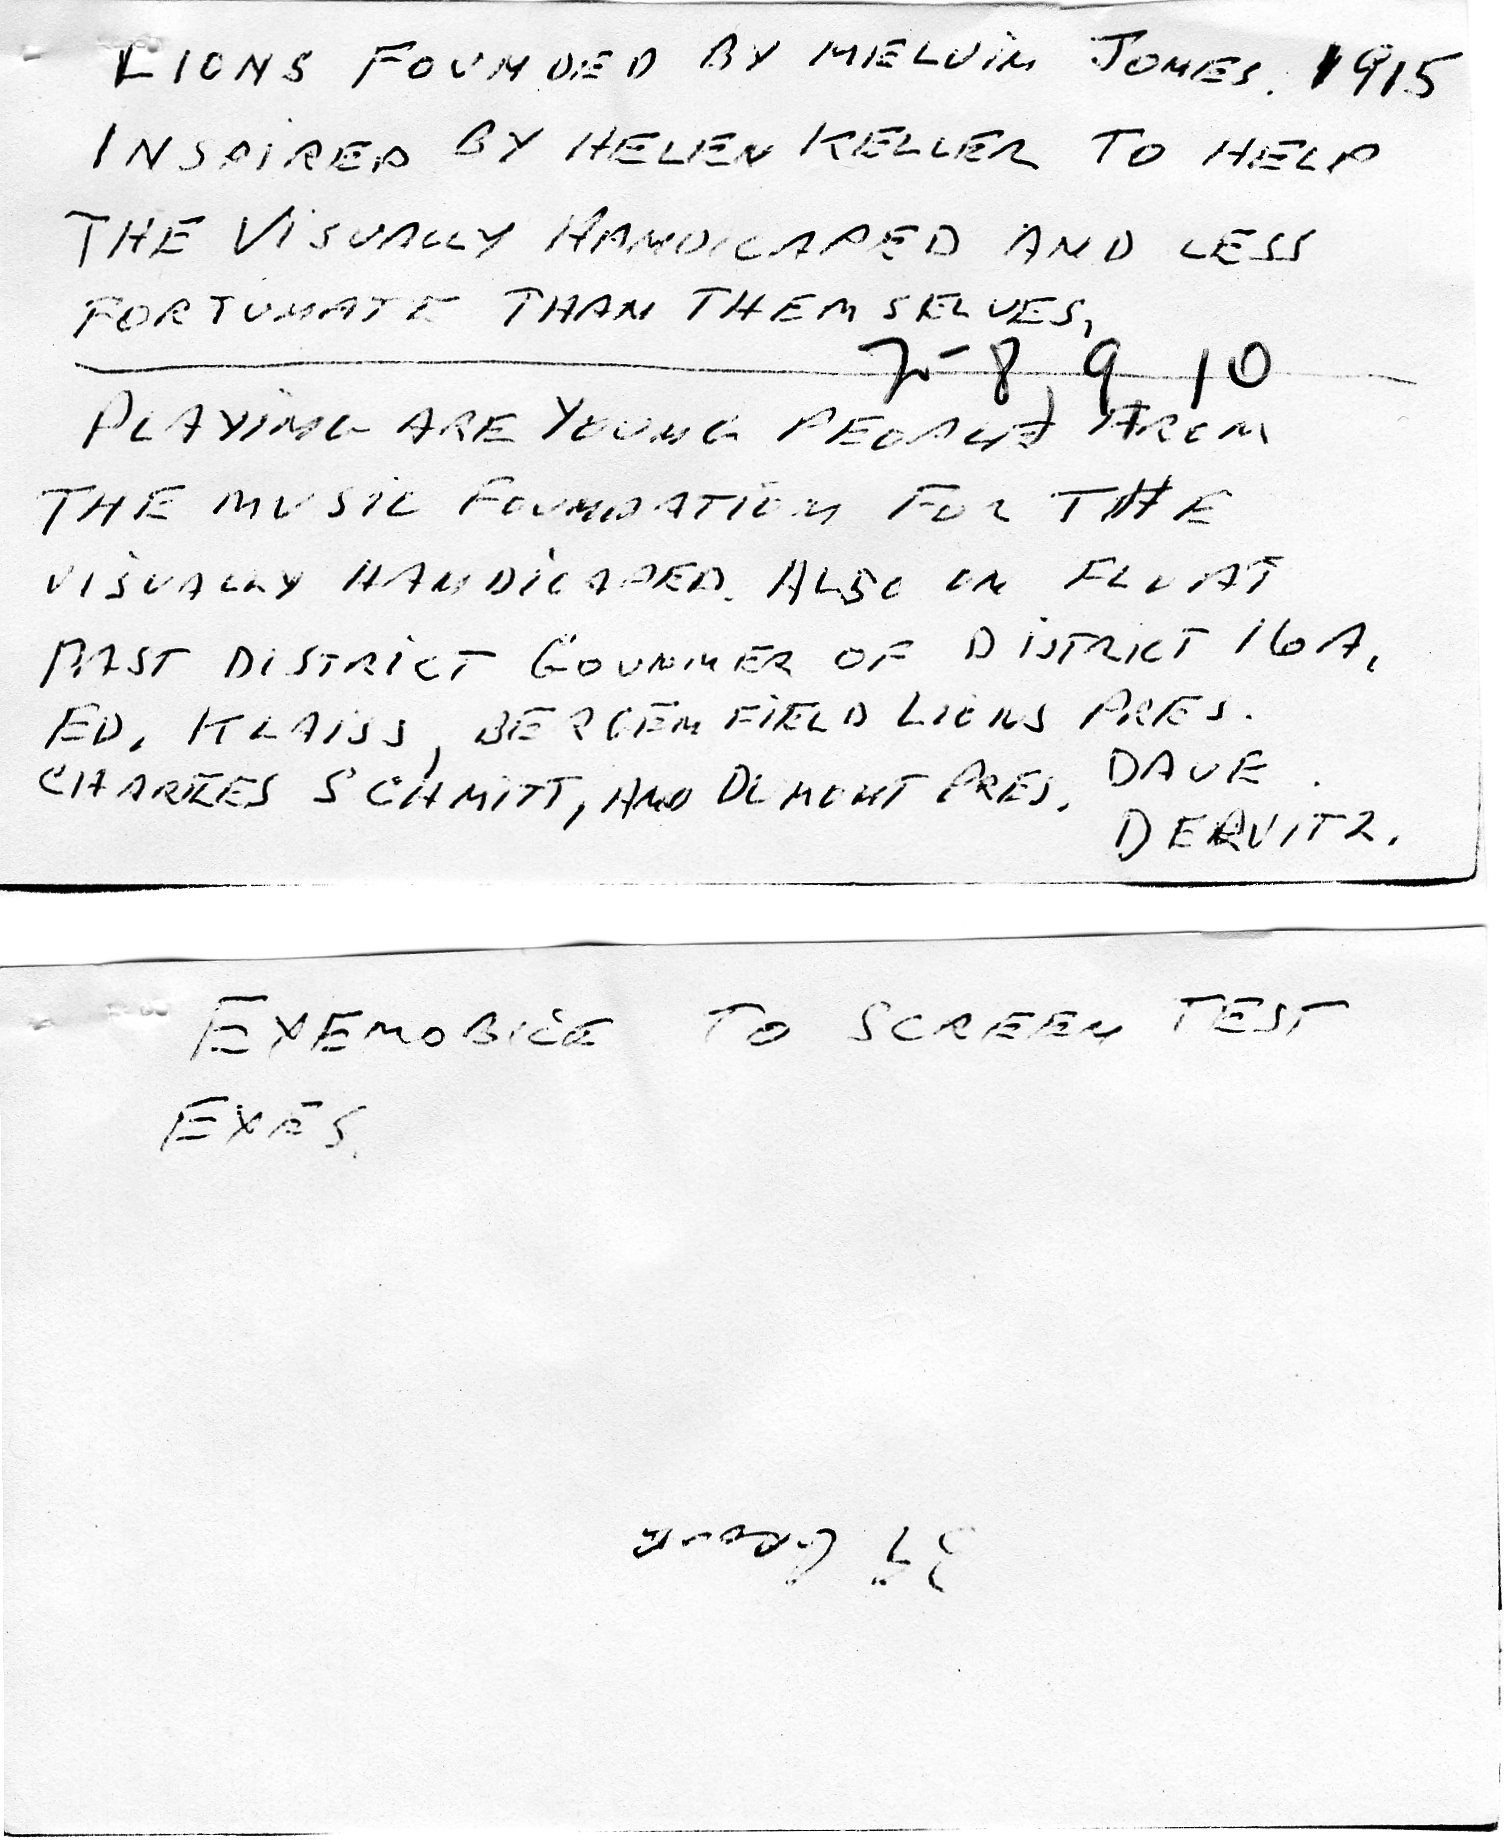 LIONS FOUNDED BY MELVIN JONES. 1915
INSPIRED BY HELEN KELLER TO HELP
THE VISUALLY HANDICAPED AND LESS
FORTUNATE THAN THEMSELVES,
7-8, 9 10
PLAYING ARE YOUNG PEOPLE FROM
THE MUSIC FOUNDATION FOR THE
VISUALLY HANDICAPED. ALSO ON FLOAT
PAST DISTRICT GOUNNER OF DISTRICT 16A,
ED. KLAISS, BERGENFIELD LIONS PRES.
CHARLES SCHMITT, AND DUMONT PRES. DAVE
DERVITZ.
EYEMOBILE TO SCREEN TEST
EYES.